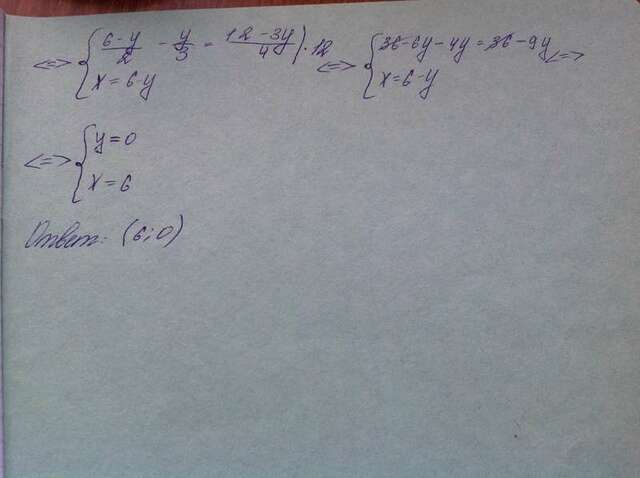 <=> { (6-y)/2 - y/3 = (12-3y)/4 | · 12 <=> { 36-6y-4y = 36-9y <=>
x = 6-y x = 6-y
<=> { y = 0
x = 6
Ответ: (6;0)